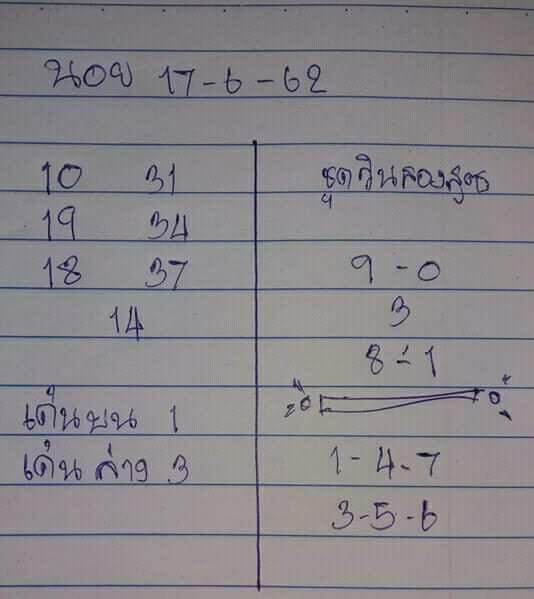 นอย 17-6-62
10 31
19 34
18 37
14
เด่นบน 1
เด่นล่าง 3
ชุดวินสองสูตร
9-0
3
8-1
1-4-7
3-5-6